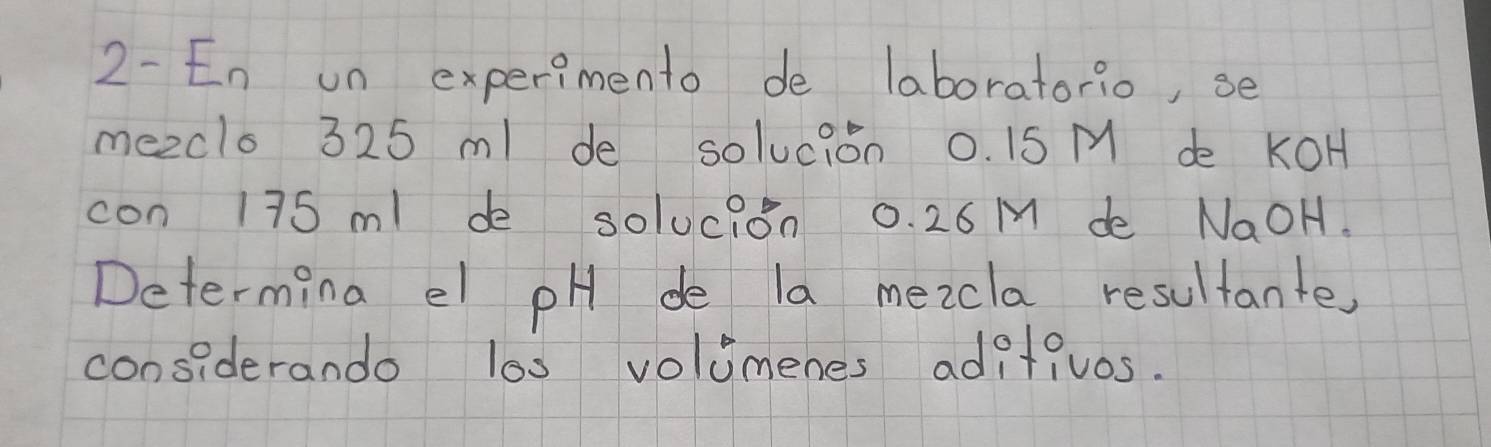 2- En un experimento de laboratorio, se
mezclo 325 ml de solución 0.15 M de KOH
con 175 ml de solución 0.26 M de NaOH.
Determina el pH de la mezcla resultante,
considerando los volúmenes aditivos.